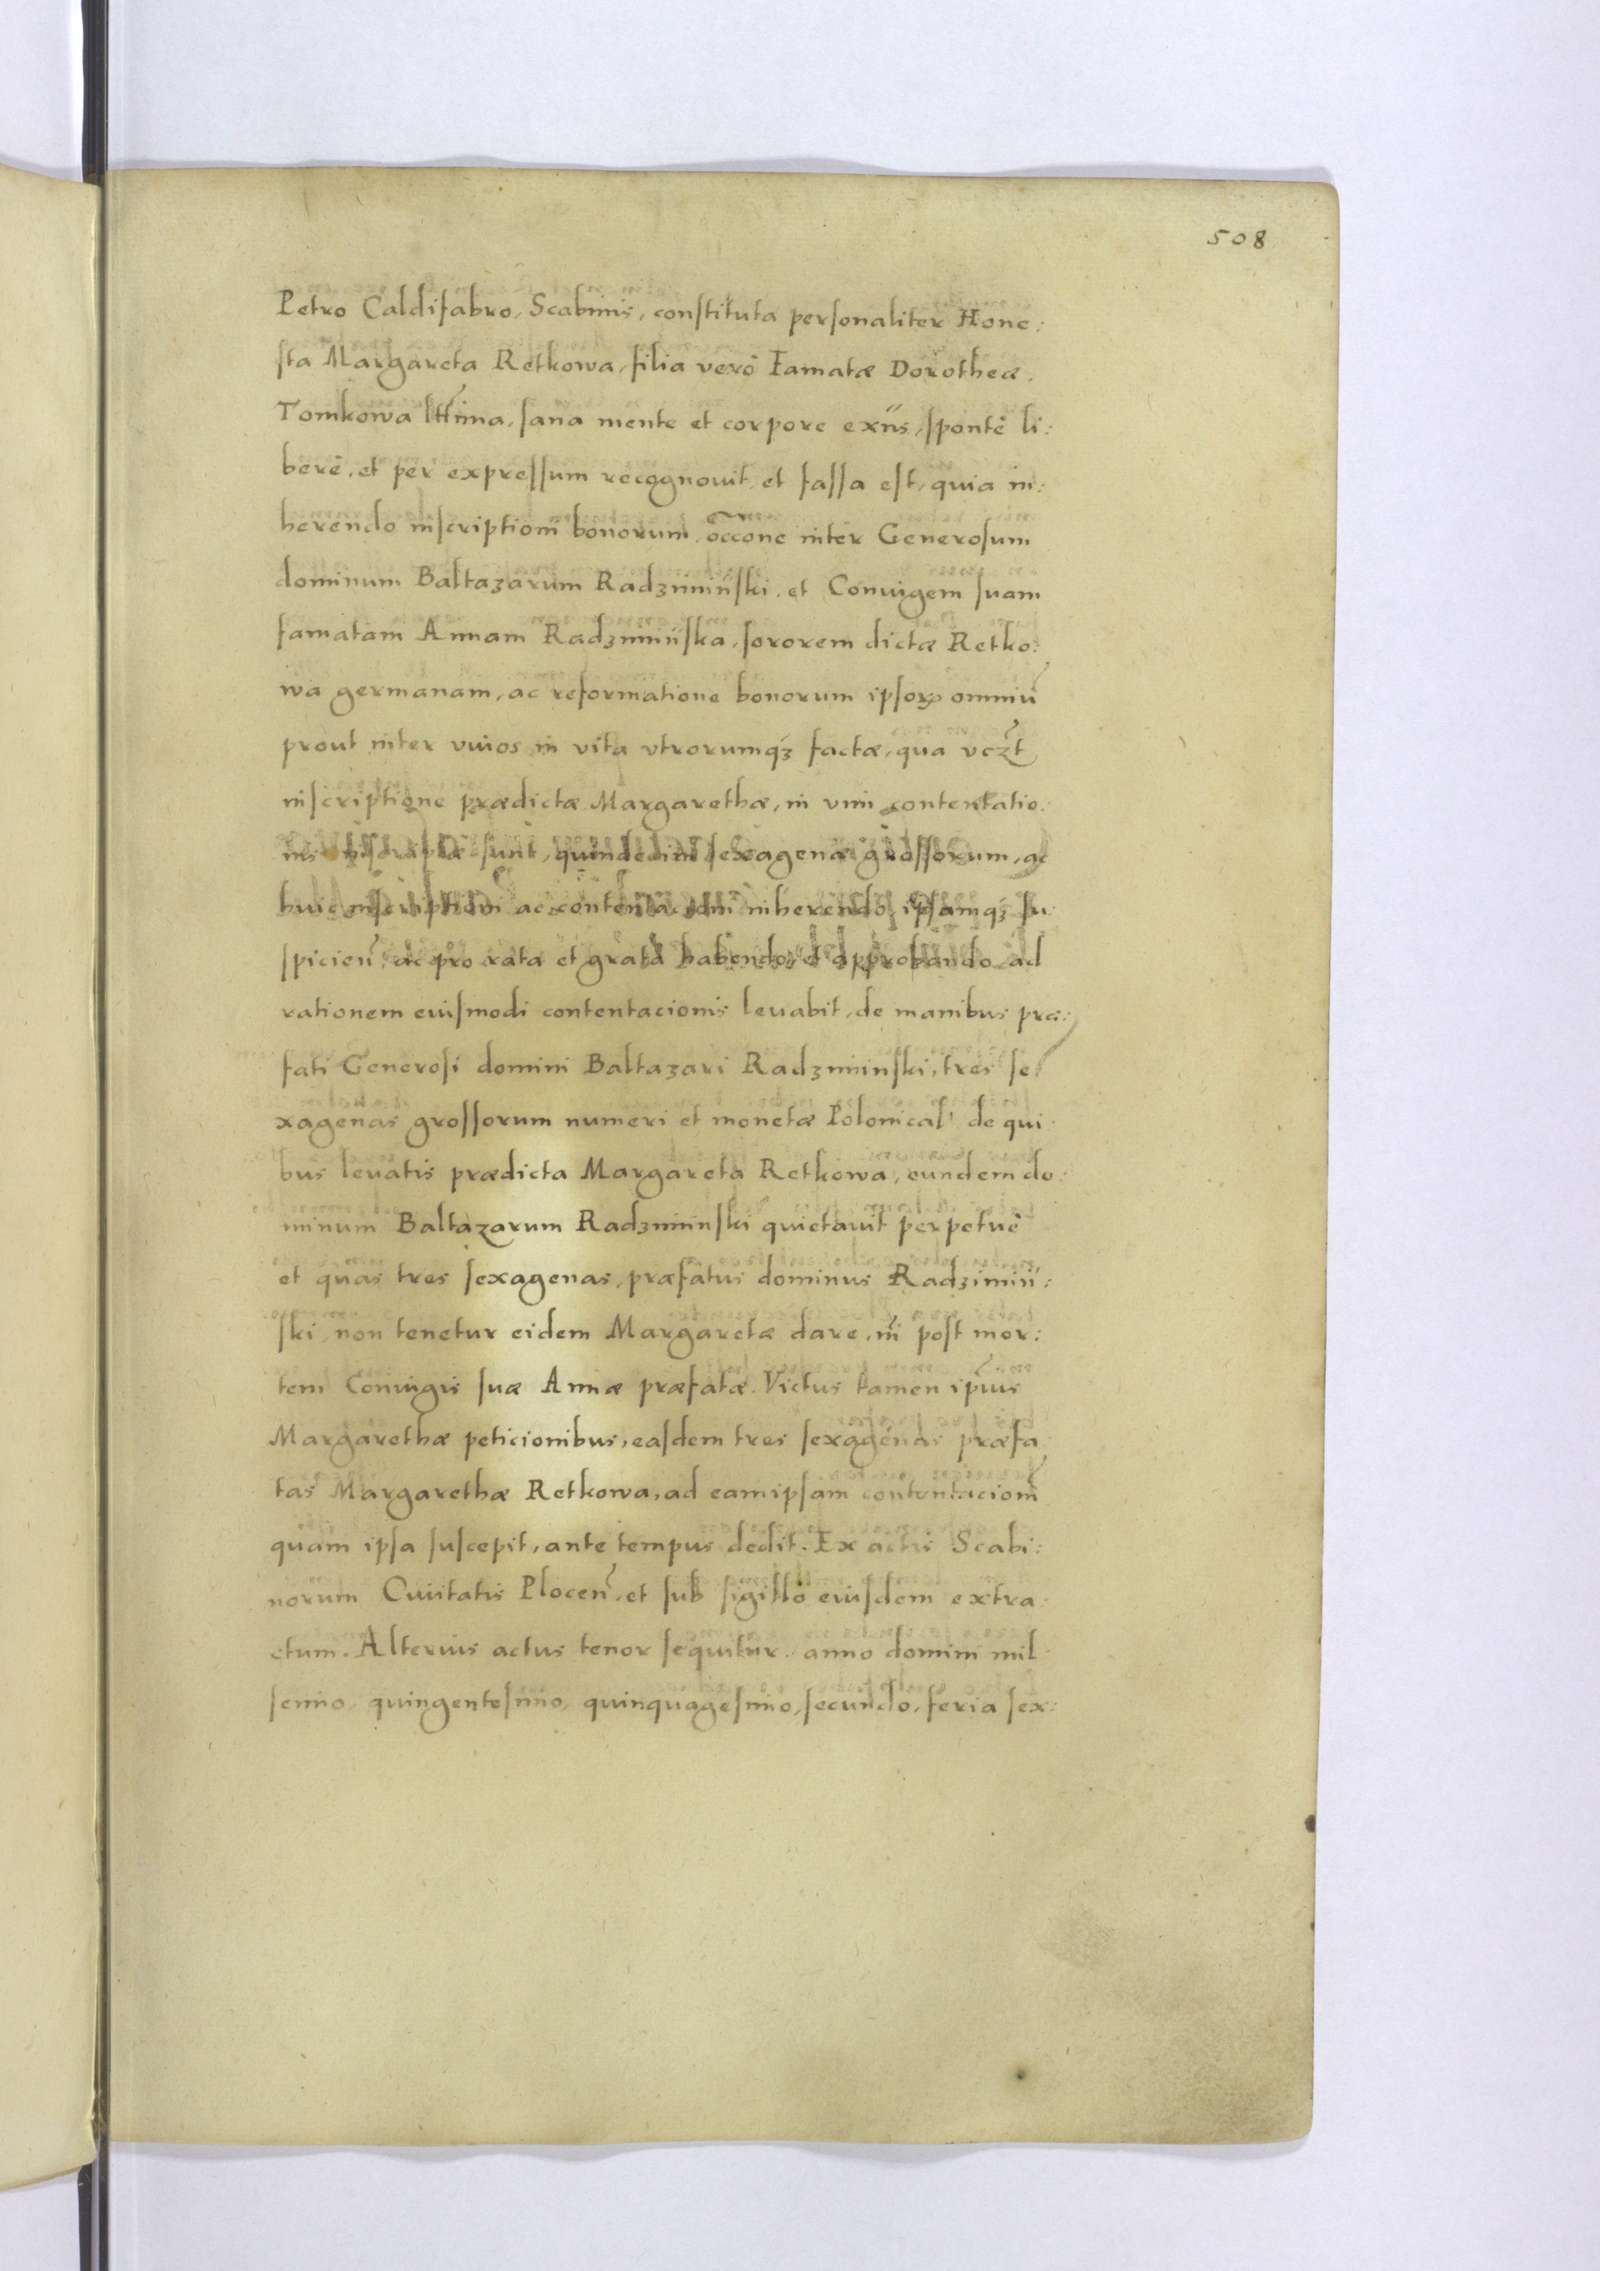 508
Petro Caldifabro, Scabinis, constituta personaliter Hone:
sta Margareta Retkowa, filia verò Famatæ Dorotheæ,
Tomkowa lttima, sana mente et corpore exñs, spontè li:
berè, et per expressum recognouit, et fassa est, quia in:
herendo inscriptioni bonorum, occone inter Generosum
dominum Baltazarum Radzimiński, et Coniugem suam
famatam Annam Radzimińska, sororem dictæ Retko:
wa germanam, ac reformatione bonorum ipsorꝝ omniũ
prout inter viuos in vita vtrorumqꝫ factæ, qua vczt
inscriptione prædictæ Margarethæ, in vim contentatio:
nis inscriptæ sunt, quindecim sexagenæ grossorum, ac
huic inscriptioni ac contentacioni inherendo, ipsamqꝫ su:
spicień, ac pro rata et grata habendo, et approbando ad
rationem eiusmodi contentacionis leuabit, de manibus præ:
fati Generosi domini Baltazari Radziminski, tres se
xagenas grossorum numeri et monetæ Polonical' de qui
bus leuatis prædicta Margareta Retkowa, eundem do:
minum Baltazarum Radziminski quietauit perpetuè
et quas tres sexagenas, præfatus dominus Radzimiń:
ski, non tenetur eidem Margaretæ dare, ni post mor:
tem Coniugis suæ Annæ præfatæ. Victus tamen ipius
Margarethæ peticionibus, easdem tres sexagenas præfa
tas Margarethæ Retkowa, ad eamipsam contentacionẽ
quam ipsa suscepit, ante tempus dedit. Ex actis Scabi:
norum Ciuitatis Plocen̄, et sub sigillo eiusdem extra
ctum. Alterius actus tenor sequitur. anno domini mil
lesimo, quingentesimo, quinquagesimo, secundo, feria sex: